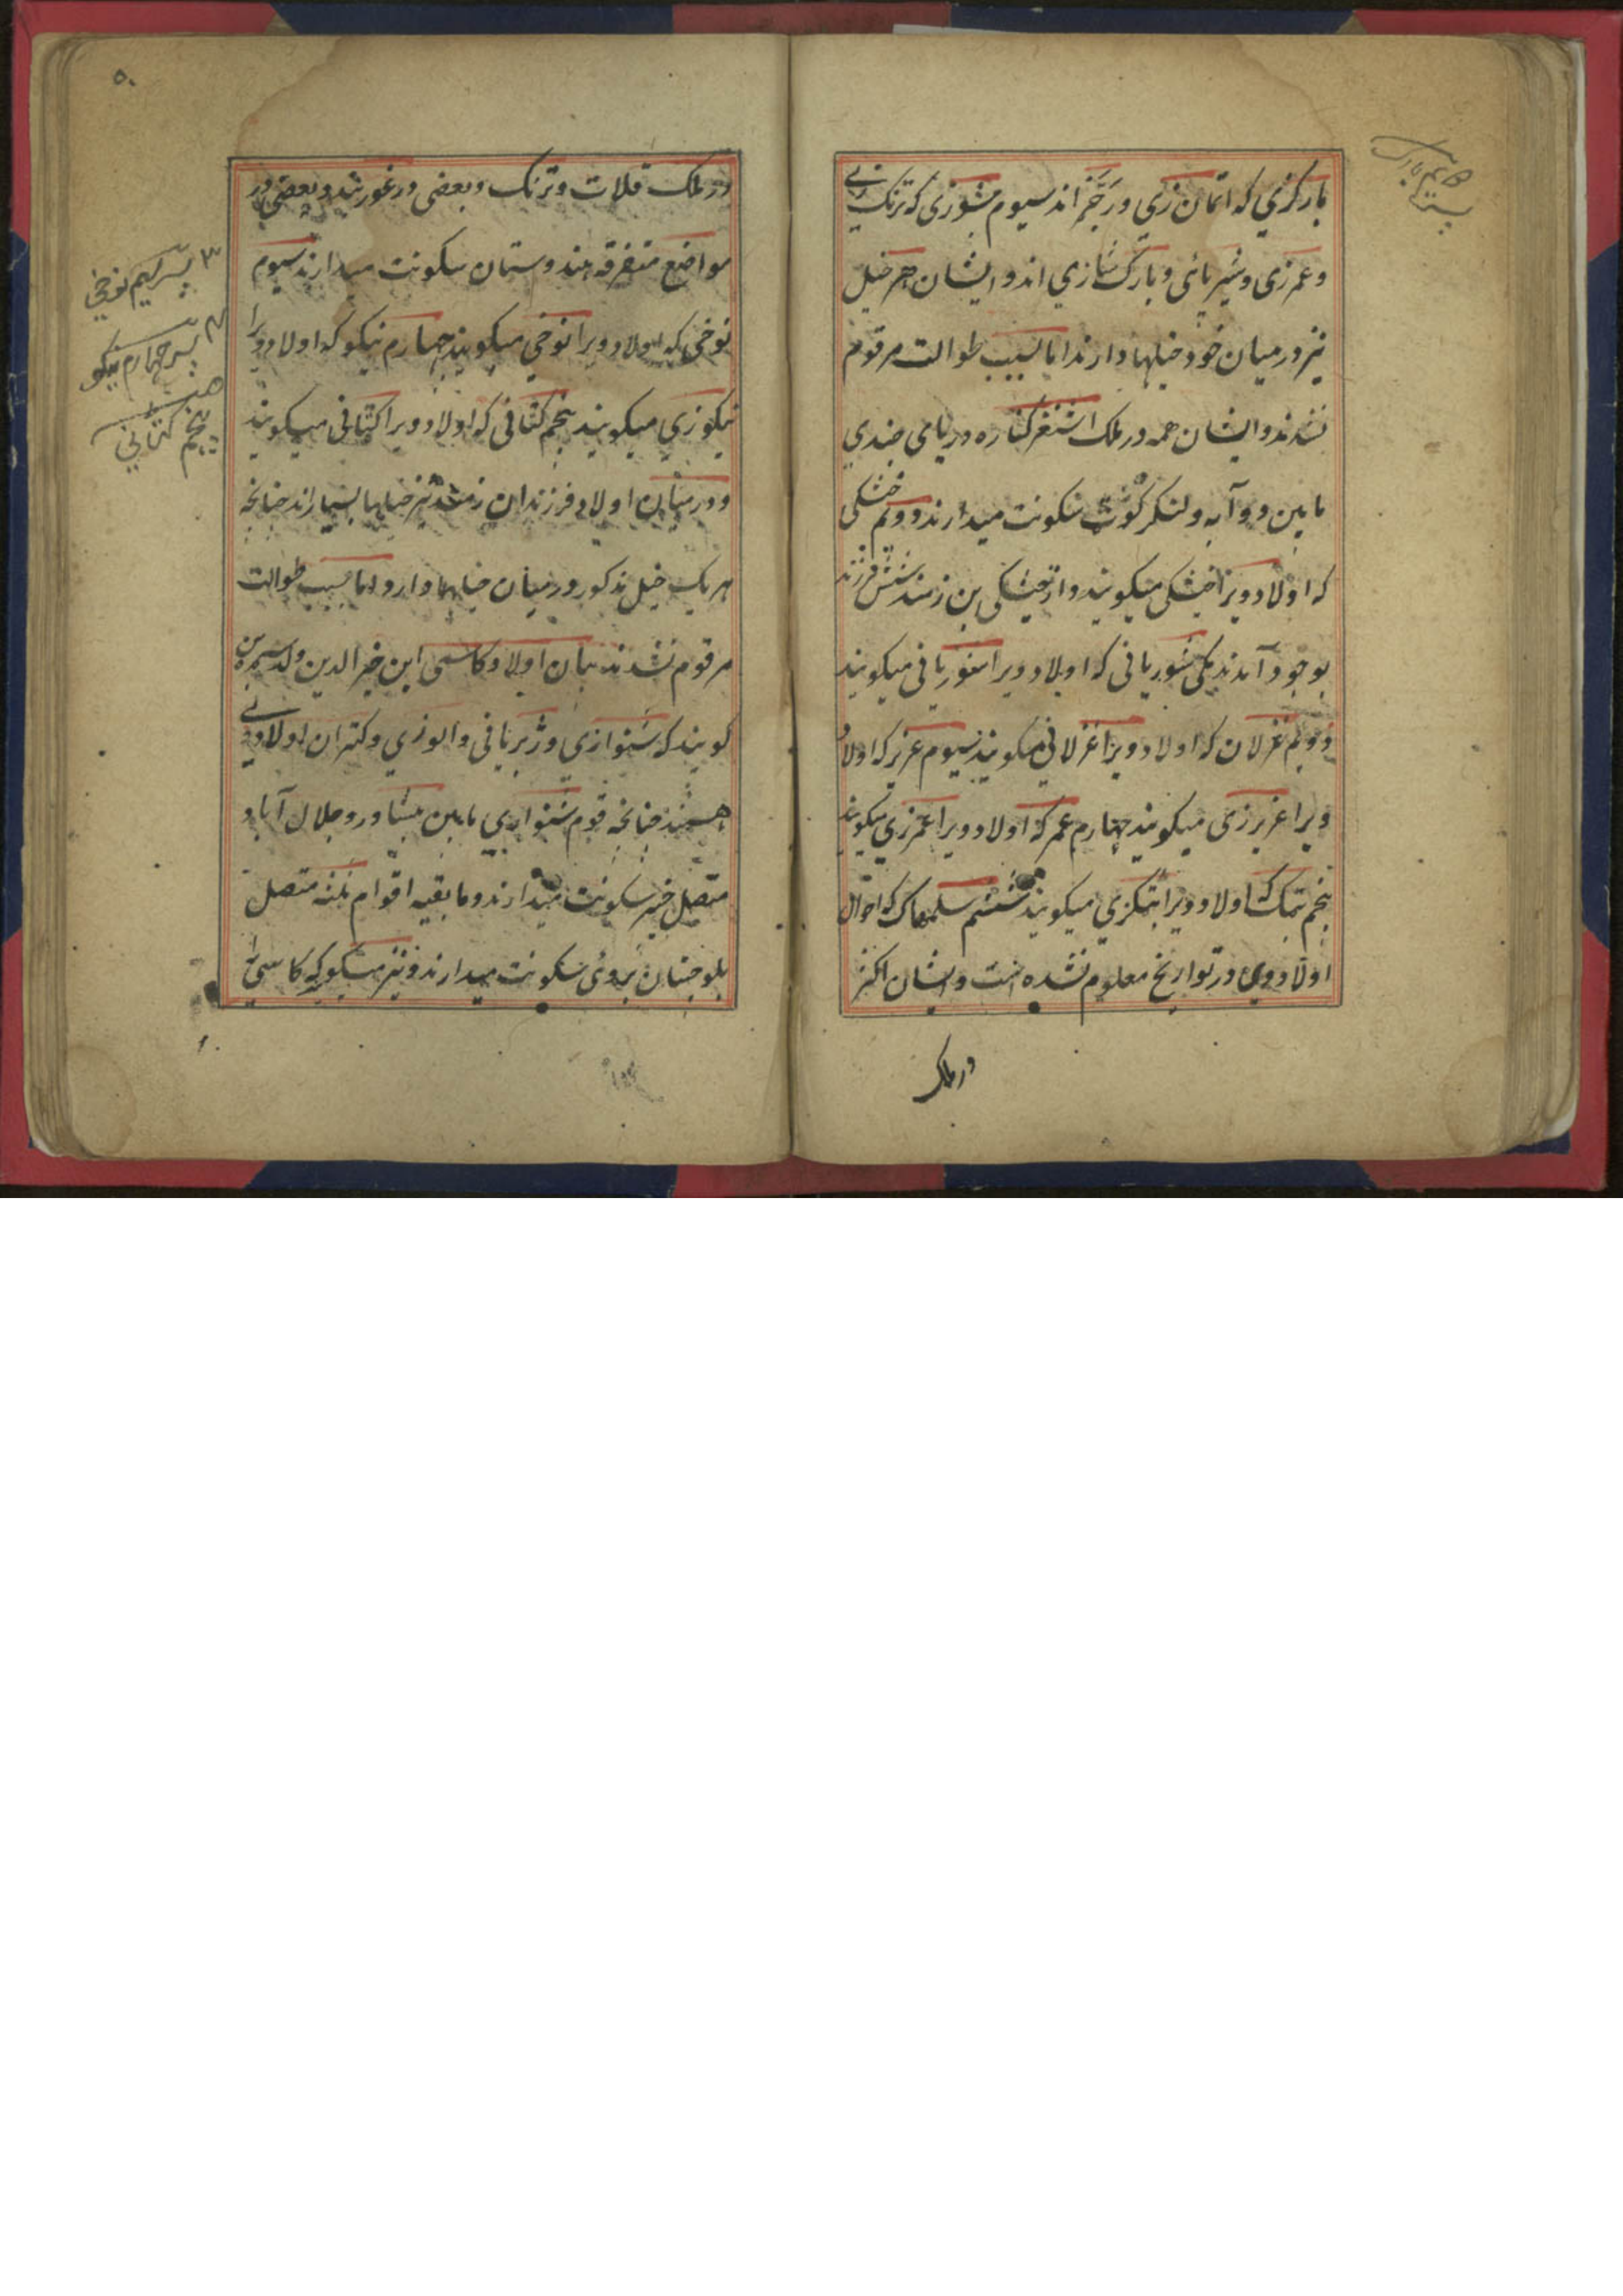 بارکزي که اتمان زي و رجَّر اند سیوم مشوزی که ترنک زي
و عمرزی و شیر پائی و بارک شازي اند و ایشان هر خیل
نیز در میان خود خیلها دارند اما بسبب طوالت مرقوم
نشدند و ایشان همه در ملک اشنغر کناره دریامی جندي
مابین دوآبه و لنکر کوٹ سکونت میدارند دویم خشکی
که اولاد ویرا خشکی میکویند و از خیشکی بن زمند شش فرزند
بوجود آمدند یکی شوریانی که اولاد ویرا شوریانی میکویند
دویم غزلان که اولاد ویرا غزلانی میکویند سیوم عزیز که اولاد
ویرا عزیرزی میکویند چهارم عمر که اولاد ویرا عمرزي میکویند
پنجم بتک که اولاد ویرا بتکزي میکویند ششم سلمهاک که احوال
اولاد وي در تواریخ معلوم نشده است و ایشان اکثر
در ملک
۵۰
در ملک قلات و ترنک و بعضی در غور بند و بعضی در
مواضع متفرقه هندوستان سکونت میدارند سیوم
نوخی که اولاد ویرا نوخي میکویند چهارم نیکو که اولاد ویرا
نیکوزي میکویند پنجم کتانی که اولاد ویرا کتانی میکویند
و درمیان اولاد فرزندان زمند نیز خیلها بسیار اند چنانچه
هر یک خیل مذکور درمیان خیلها دارد اما بسبب طوالت
مرقوم نشدند بیان اولاد کاسی ابن خیر الدین ولد سره بن
کویند که شنوازی و زبریانی و الوزي و کتران اولاد وي
هستند چنانچه قوم شنواري مابین پشاور و جلال آباد
متصل خیبر سکونت میدارند و ما بقیه اقوام ثلثه متصل
بلوچستان بروئی سکونت میدارند و نیز میکوید که کاسی را
۳ پسر سیم نوخي
۴ پسر چهارم نیکو
پنجم کتاني